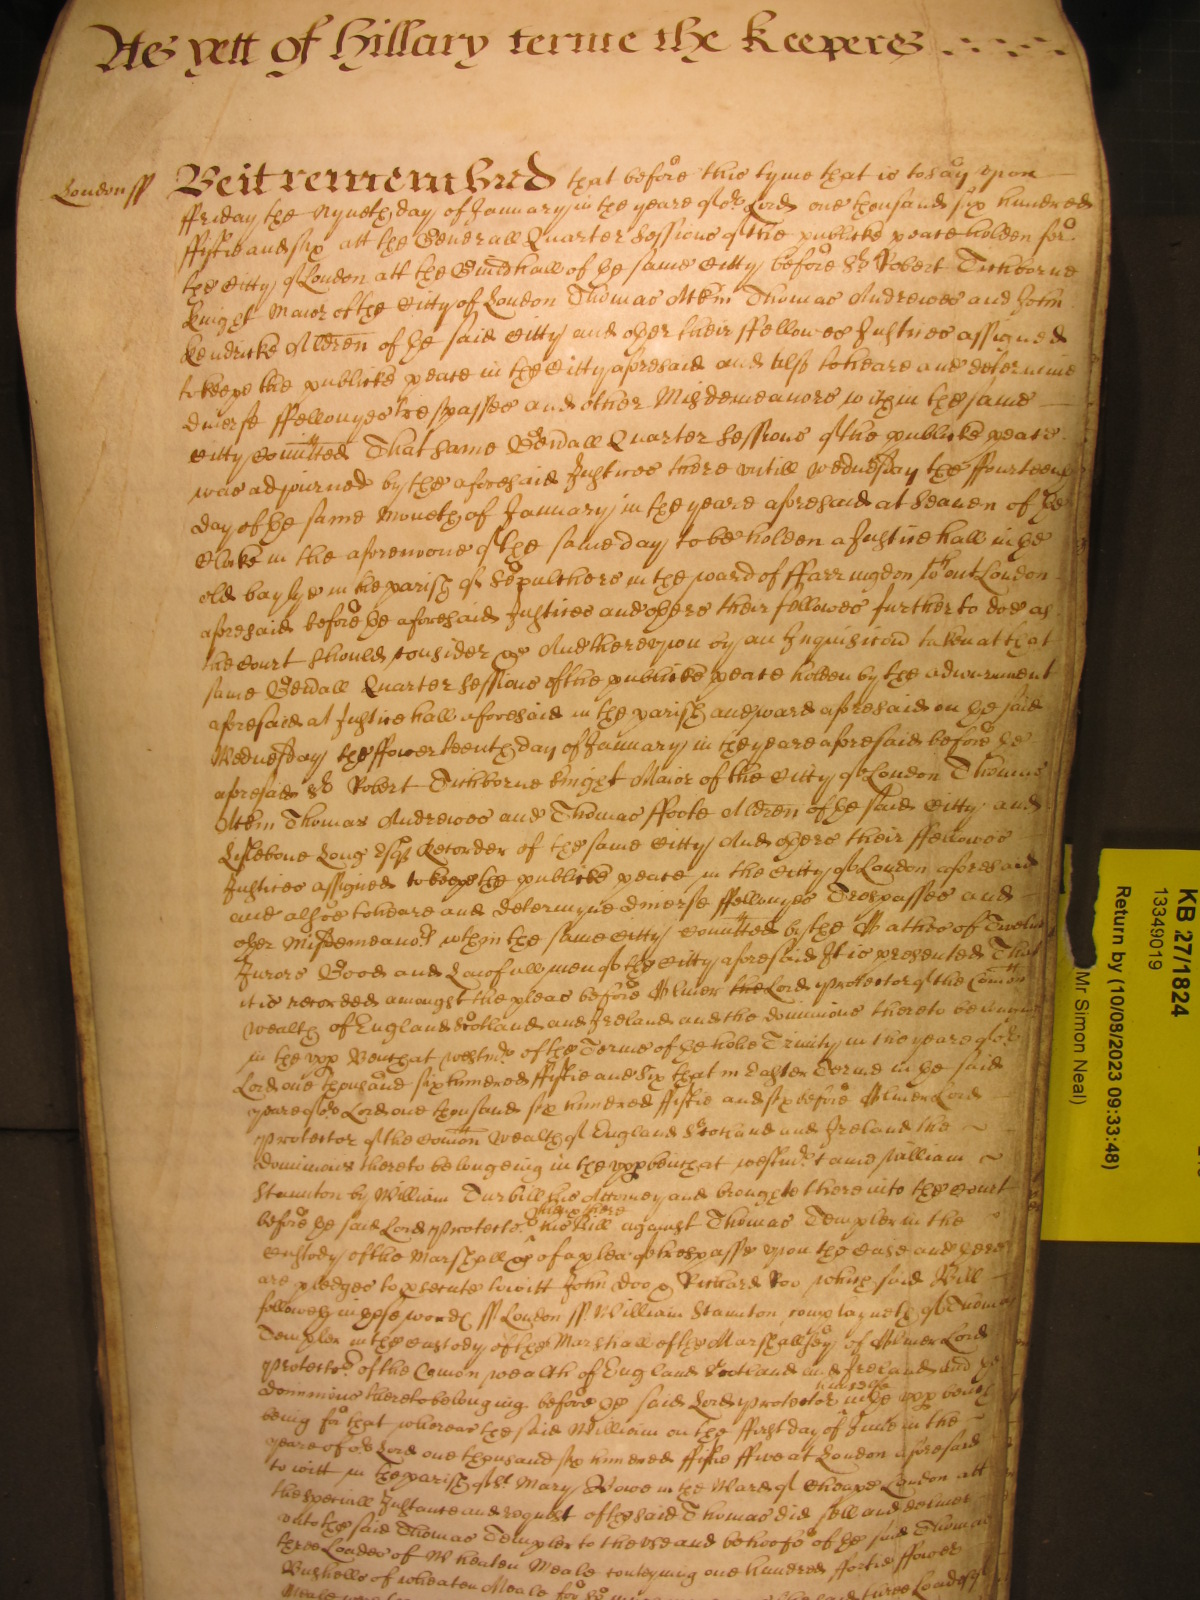 As yett of Hillary terme the Keepers
London ss Be it remembred that before this tyme that is to say upon
ffriday the Nyneth day of January in the yeare of or Lord one thousand six hundred
ffiftie and six att the Generall Quarter Sessions of the publicke peace holden for
the Citty of London att the Guildhall of the same Citty before Sr Robert Tichborne
Knight Maior of the Citty of London Thomas Atkin Thomas Andrewes and John
Kendricke Aldren of the said Citty and other their ffellowes Justices assigned
to keepe the publicke peace in the Citty aforesaid and also to heare and determine
diverse ffellonyes trespasses and other Misdemeanors within the same
Citty comitted That same Genrall Quarter Sessions of the publicke peace
was adjourned by the aforesaid Justices there untill Wednesday the ffourteenth
day of the same Moneth of January in the yeare aforesaid at Seaven of the
Clocke in the aforenoone of the same day to be holden a Justice hall in the
old baylye in the parish of Sepulchers in the ward of ffarringdon wthout London
aforesaid before the aforesaid Justices and others their fellowes further to doe as
the Court should consider &c And thereupon by an Inquisicon taken at that
same Genrall Quarter Sessions of the publicke peace holden by the adiournment
aforesaid at Justice hall aforesaid in the parish and ward aforesaid on the said
Wednesday the ffowerteenth day of January in the yeare aforesaid before the
aforesaid Sr Robert Tichborne Knight Maior of the Citty of London Thomas
Atkin Thomas Andrewes and Thomas ffoote Aldren of the said Citty and
Lislebone Long Esqr Recorder of the same Citty And others their ffellowes
Justices assigned to keepe the publicke peace in the Citty of London aforesaid
and alsoe to heare and determyne diverse ffellonyes Trespasses and
other Misdemeanors wthin the same Citty comitted by the Oathes of Twelve
Jurors Good and Lawfull men of the Citty aforesaid It is presented That
it is recorded amongst the pleas before Oliver the Lord protector of the Comon
wealth of England Scotland and Ireland and the dominions thereto belonging
in the upp Bench at westmr of the Terme of the holie Trinity in the yeare of or
Lord one thousand six hundred ffiftie and Six That in Easter Terme in the said
yeare of or Lord one thousand six hundred ffiftie and six before Oliver Lord
protector of the Comon wealth of England Scotland and Ireland the
dominions thereto belongeing in the upp bench at westmr came William
Staunton by William Turbill his Attorney and brought there into the Court
before the said Lord protector then there his Bill against Thomas Templer in the
custody of the Marshall &c of a plea of trespasse upon the case and there
are pledges to psecute to witt John Doo & Richard Roo which said Bill
followeth in these words ss London ss William Staunton complayneth of Thomas
Templer in the custody of the Marshall of the Marshallsey of Oliver Lord
protector of the Comon wealth of England Scotland and Ireland and the
dominions thereto belonging before the said Lord protector himselfe in the upp bench
being for that whereas the said William on the first day of June in the
yeare of or Lord one thousand six hundred ffiftie ffive at London aforesaid
to witt in the parish of St Mary Bowe in the Ward of Cheape London att
the speciall Instance and request of the said Thomas did sell and deliver
unto the said Thomas Templer to the use and behoofe of the said Thomas
three Loades of Wheaten Meale conteyning one hundred ffortie ffower
Bushells of wheaten Meale for
KB 27/1824
13349019
Return by (10/08/2023 09:33:48)
Mr Simon Neal)